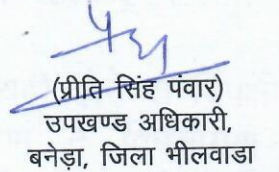 (प्रीति सिंह पंवार)
उपखण्ड अधिकारी,
बनेड़ा, जिला भीलवाडा